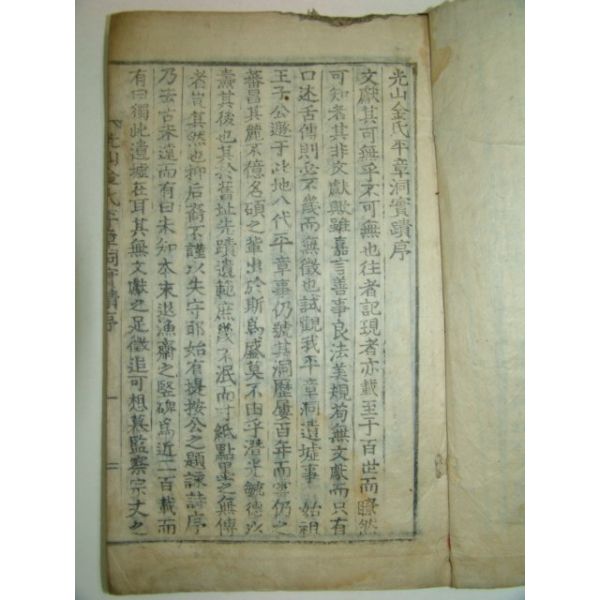 光山金氏平章洞實蹟序
文獻其可無乎不可無也往者記現者亦載至于百世而瞭然
可知者其非文獻歟雖嘉言善事良法美規苟無文獻而只有
口述舌傳則不幾而無徵也試觀我平章洞遺墟事 始祖
王子公遯于此地八代平章事仍號其洞歷屢百年而雲仍之
蕃昌其麗不億名碩之輩出於斯爲盛莫不由乎潛光毓德以
燾其後也其於舊址先蹟遺範庶幾不泯而寸紙點墨之無傳
者豈其然也抑后裔不謹以失守耶始有提按公之題詠詩序
乃去古未遠而有曰未知本末退漁齋之竪碑爲近二百載而
有曰獨此遺墟在耳其無文獻之足徵追可想慕監察宗丈之
光山金氏平章洞實蹟序 一